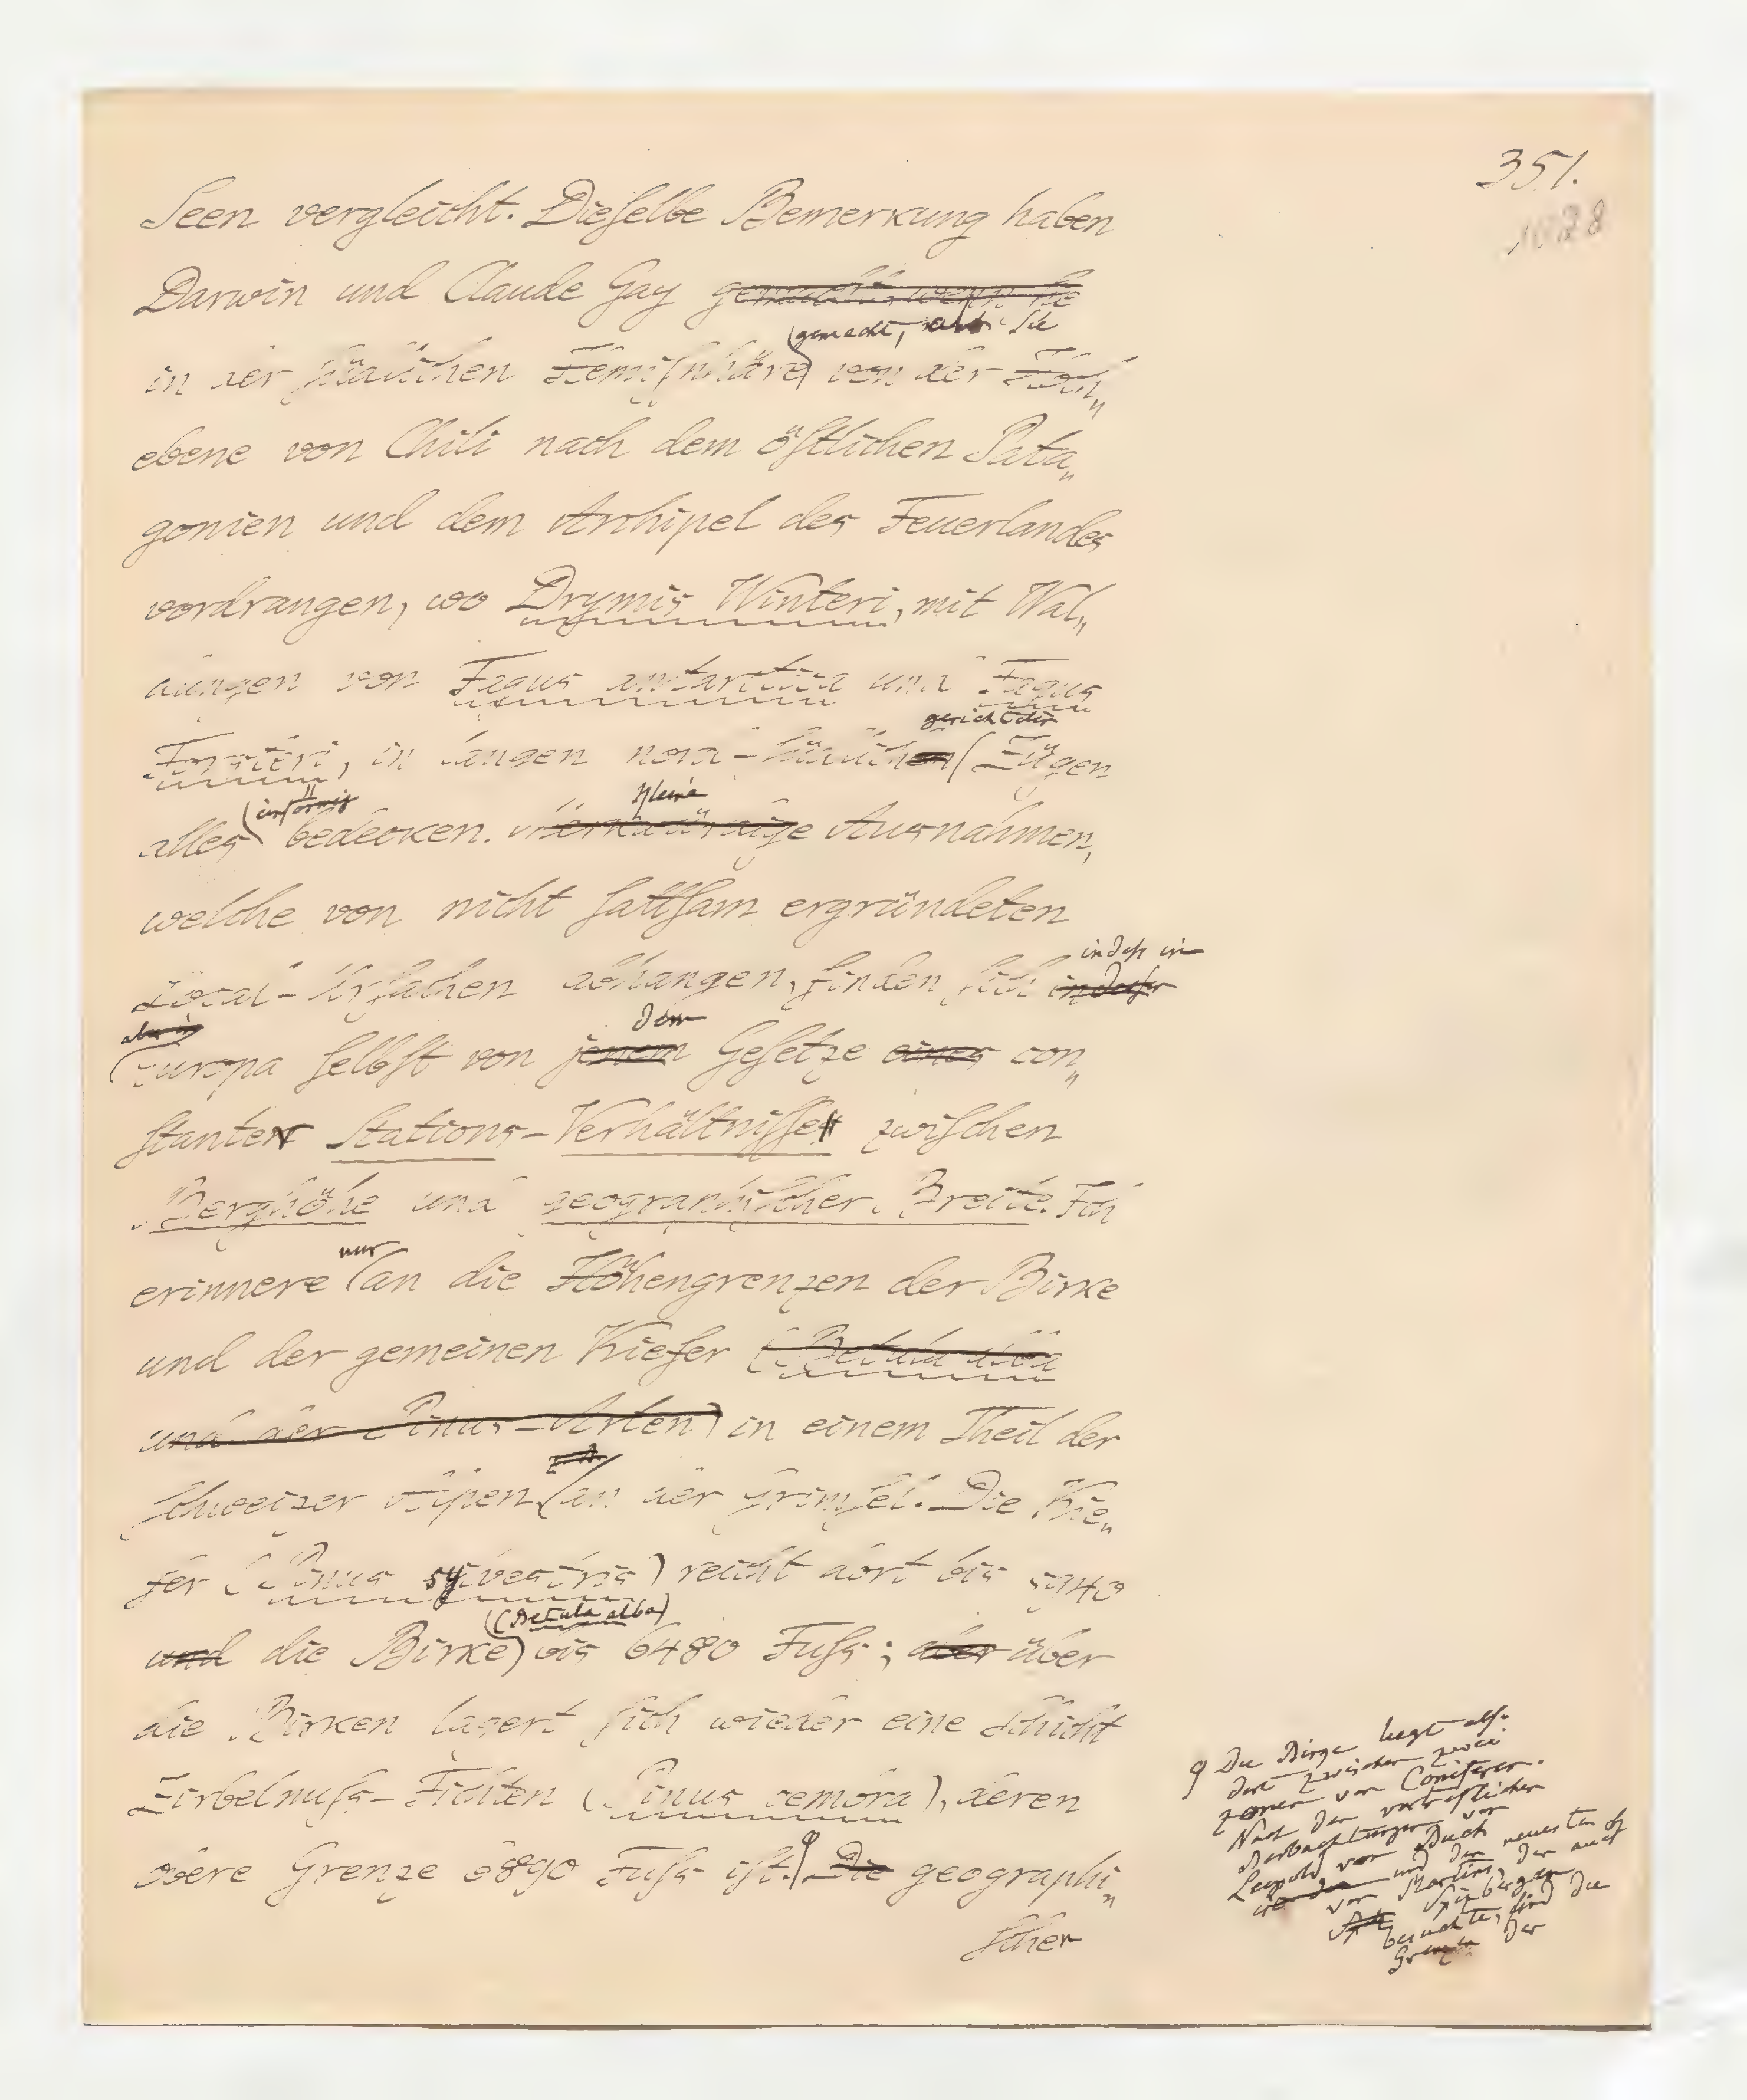 351.
1028
Seen vergleicht. Dieſelbe Bemerkung haben
Darwin und Claude Gay gemacht, wenn ſie
gemacht, als Sie
in der ſüdlichen Hemiſphäre von der Hoch„
ebene von Chili nach dem öſtlichen Pata„
gonien und dem Archipel des Feuerlandes
vordrangen, wo Drymis Winteri, mit Wal„
dungen von Fagus antarctica und Fagus
gerichteten
Forsteri, in langen nord-ſüdlichen Zügen
einförmig kleine
alles bedecken. Merkwürdige Ausnahmen,
welche von nicht ſattſam ergründeten
indeß in
Local-Urſachen abhangen, finden ſich
aber in dem
Europa ſelbſt von jenem Geſetze eines con„
ſtanter Stations-Verhältniſſe zwiſchen
Berghöhe und geographiſcher Breite. Ich
nur
erinnere an die Höhengrenzen der Birke
und der gemeinen Kiefer (Betula alba
und der Pinus-Arten) in einem Theil der
Schweizer Alpen an der Grimſel. Die Kie„
fer (Pinus sylvestris) reicht dort bis 5940
(Betula alba)
und die Birke bis 6480 Fuſs; aber über
die Birken lagert ſich wieder eine Schicht
Zirbelnuſs-Fichten (Pinus cembra), deren
obere Grenze 6890 Fuſs iſt. Die geographi„
ſcher
Die Birke liegt also
dort zwischen zwei
Zonen von Coniferen.
Nach den vortreflichen
Beobachtungen von
Leopold von Buch
und den neuesten
von Martins, der auch
Spitzbergen
besuchte, sind die
Grenzen der